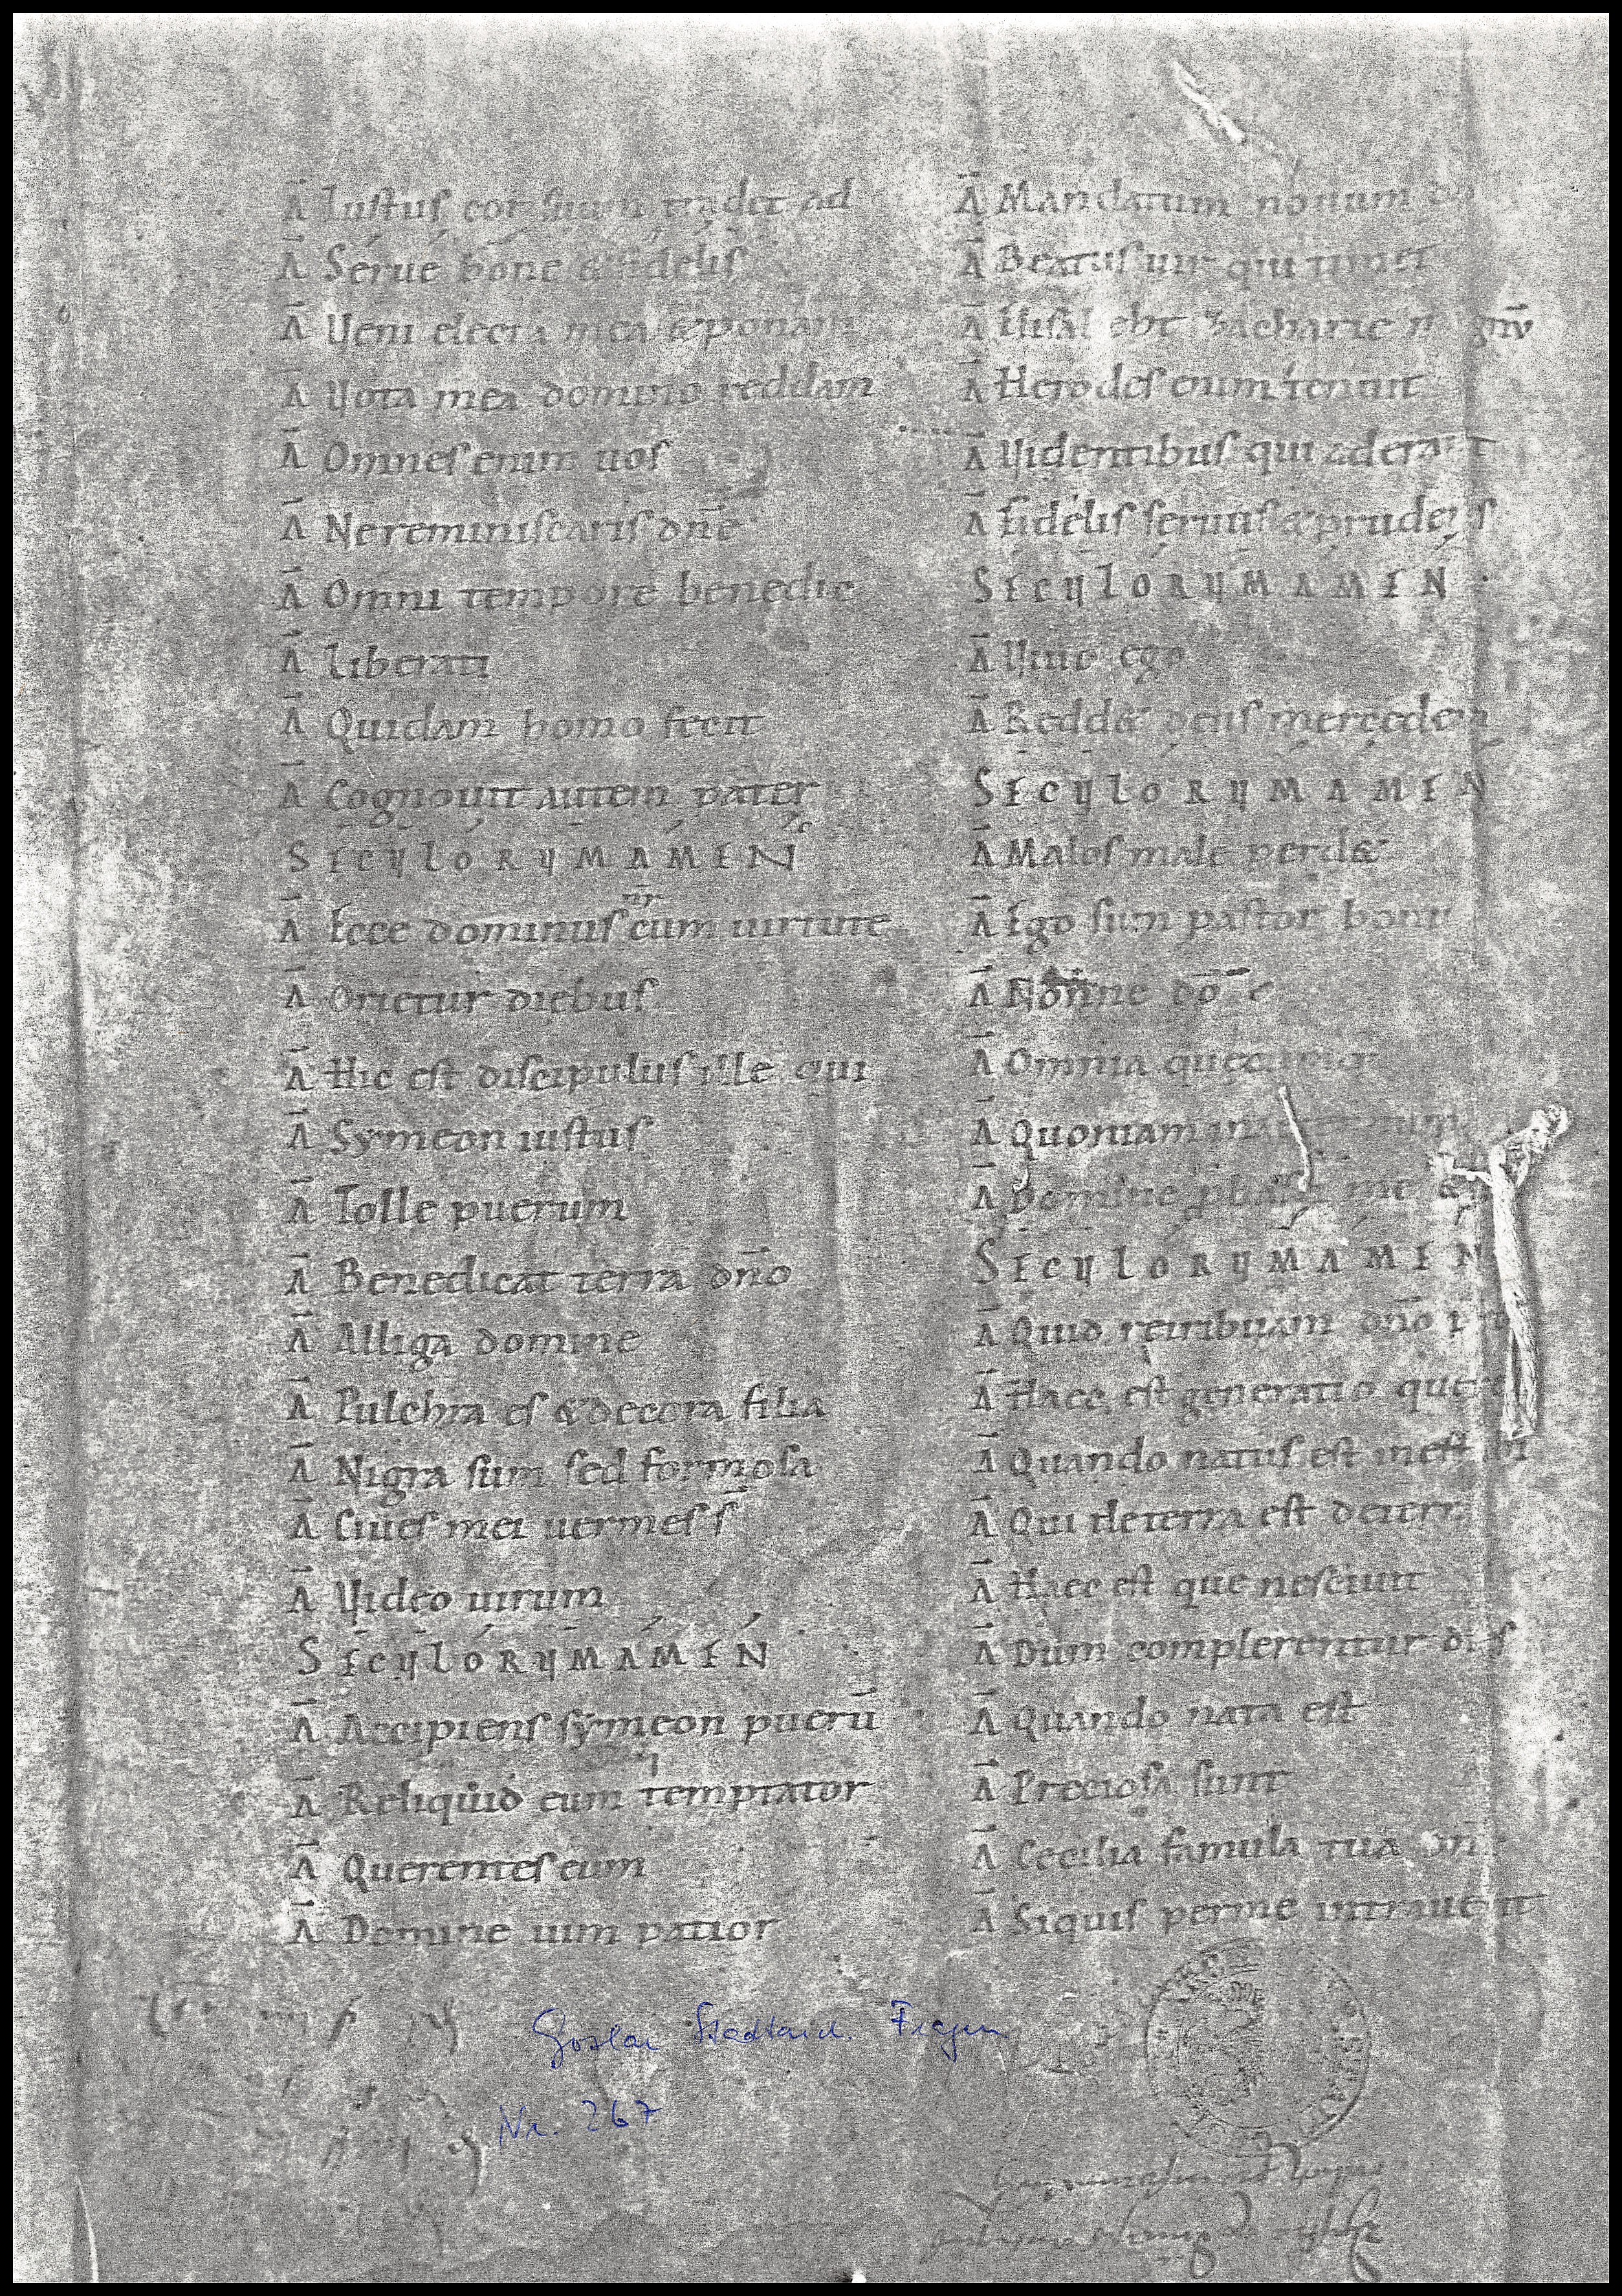 A̅ Iustus cor suum tradet ad
A̅ Serue bone & fidelis
A̅ Veni electa mea & ponam
A̅ Vota mea domino reddam
A̅ Omnes enim uos
A̅ Ne reminiscaris dn̅e
A̅ Omni tempore benedic
A̅ Liberati
A̅ Quidam homo fecit
A̅ Cognouit autem pater
SECVLORVM AMEN
A̅ Ecce dominus n̅r cum uirtute
A̅ Orietur diebus
A̅ Hic est discipulus ille qui
A̅ Symeon iustus
A̅ Tolle puerum
A̅ Benedicat terra dn̅o
A̅ Alliga domine
A̅ Pulchra es & decora filia
A̅ Nigra sum sed formosa
A̅ Ciues mei uermes s̅
A̅ Video uirum
SECVLORVM AMEN
A̅ Accipiens symeon pueru̅
A̅ Reliquid eum temptator
A̅ Querentes eum
A̅ Domine uim patior
A̅ Mandatum nouum
A̅ Beatus uir qui timet
A̅ zacharie
A̅ Herodes enim tenuit
A̅ Videntibus qui aderant
A̅ Fidelis seruus & prudens
SECVLORVM AMEN
A̅ Viuo ego
A̅ Redd& deus mercedem
SECVLORVM AMEN
A̅ Malos male perd&
A̅ Ego sum pastor bonus
A̅ Nonne
A̅ Omnia
A̅ Quoniam
A̅ Domine me
SECVLORVM AMEN
A̅ Quid retribuam dn̅o
A̅ Haec est generatio
A̅ Quando natus est
A̅ Qui de terra est de terra
A̅ Haec est que nesciuit
A̅ Dum complerentur dies
A̅ Quando nata est
A̅ Preciosa sunt
A̅ Cecilia famula tua
A̅ Siquis per me introierit
Goslar Stadtarch. Fragm.
Nr. 267